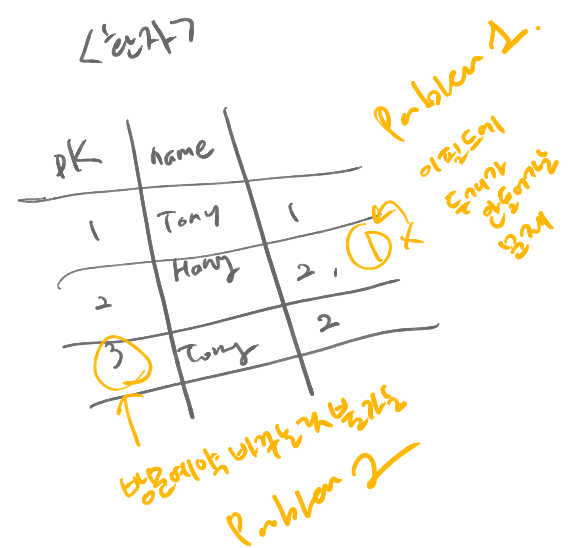 <환자>
pK name
1 Tony 1
2 Hang 2, 1 x
3 Tony 2
Problem 1.
이 필드에
두개가
안들어가는
문제
방문예약 바꾸는것 불가능
Problem 2